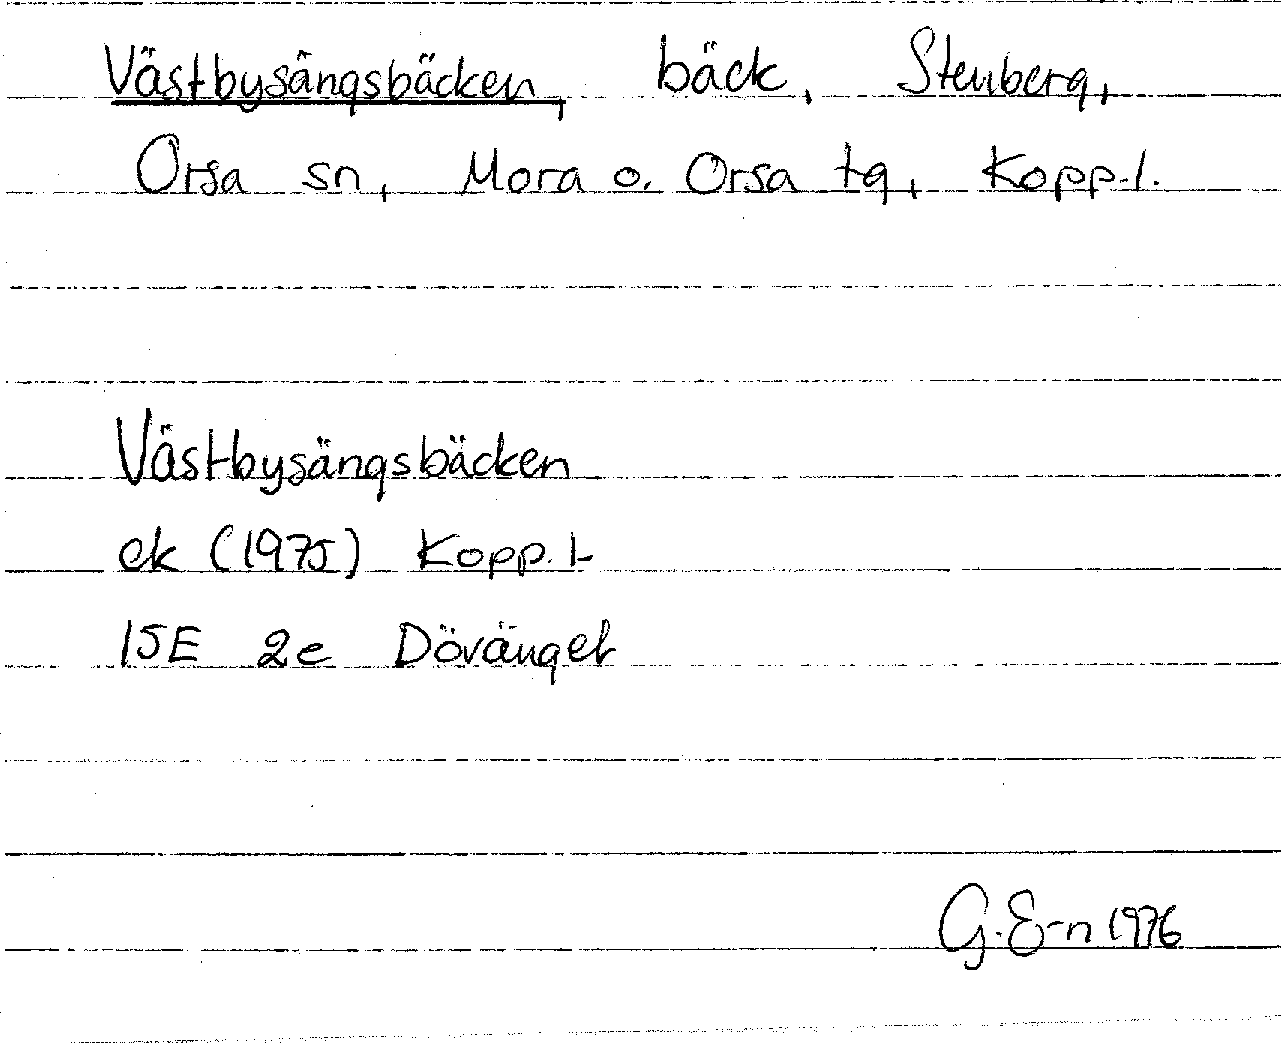 Västbysängsbäcken, bäck, Stenberg,
Orsa sn, Mora o. Orsa tg, Kopp.l.
Västbysängsbäcken
ek (1975) Kopp.l.
15E 2e Dövänget
G.E-n 1976